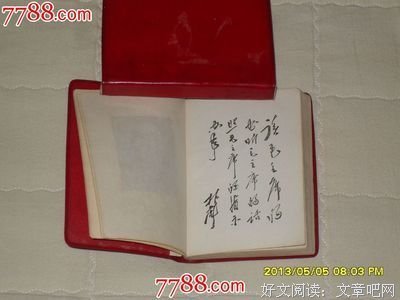 7788.com
读毛主席的
书听毛主席的话
照毛主席的指示
办事
林彪
2013/05/05 08:03 PM
7788.com
好文阅读：文章吧网